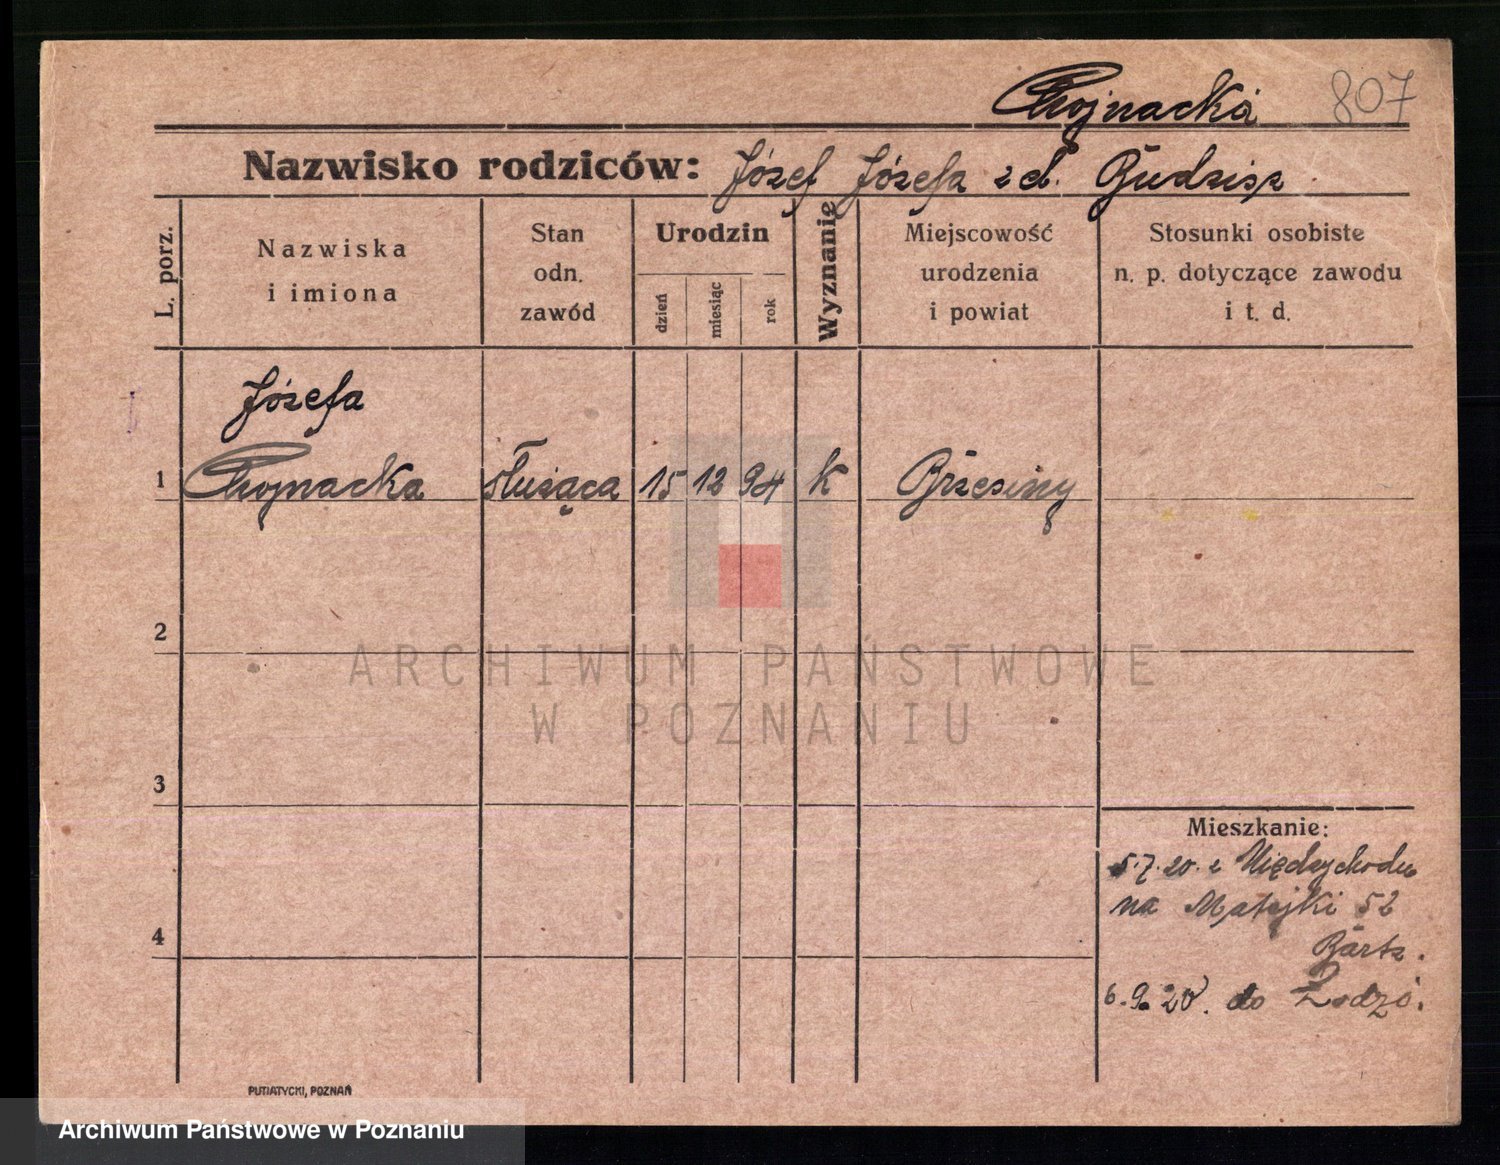 Chojnacka 807
Nazwisko rodziców: Józef Józefa z d. Budzisz
L. porz.
Nazwiska
i imiona
Stan
odn.
zawód
Urodzin
dzień
miesiąc
rok
Wyznanie
Miejscowość
urodzenia
i powiat
Stosunki osobiste
n. p. dotyczące zawodu
i t. d.
Józefa
1 Chojnacka służąca 15 12 94 k Brzesiny
2
ARCHIWUM PAŃSTWOWE
W POZNANIU
3
Mieszkanie:
5.7.20. z Międzychodu
na Matejki 52
4
Bartz.
6.9.20. do Łodzi.
PUTIATYCKI, POZNAŃ
Archiwum Państwowe w Poznaniu